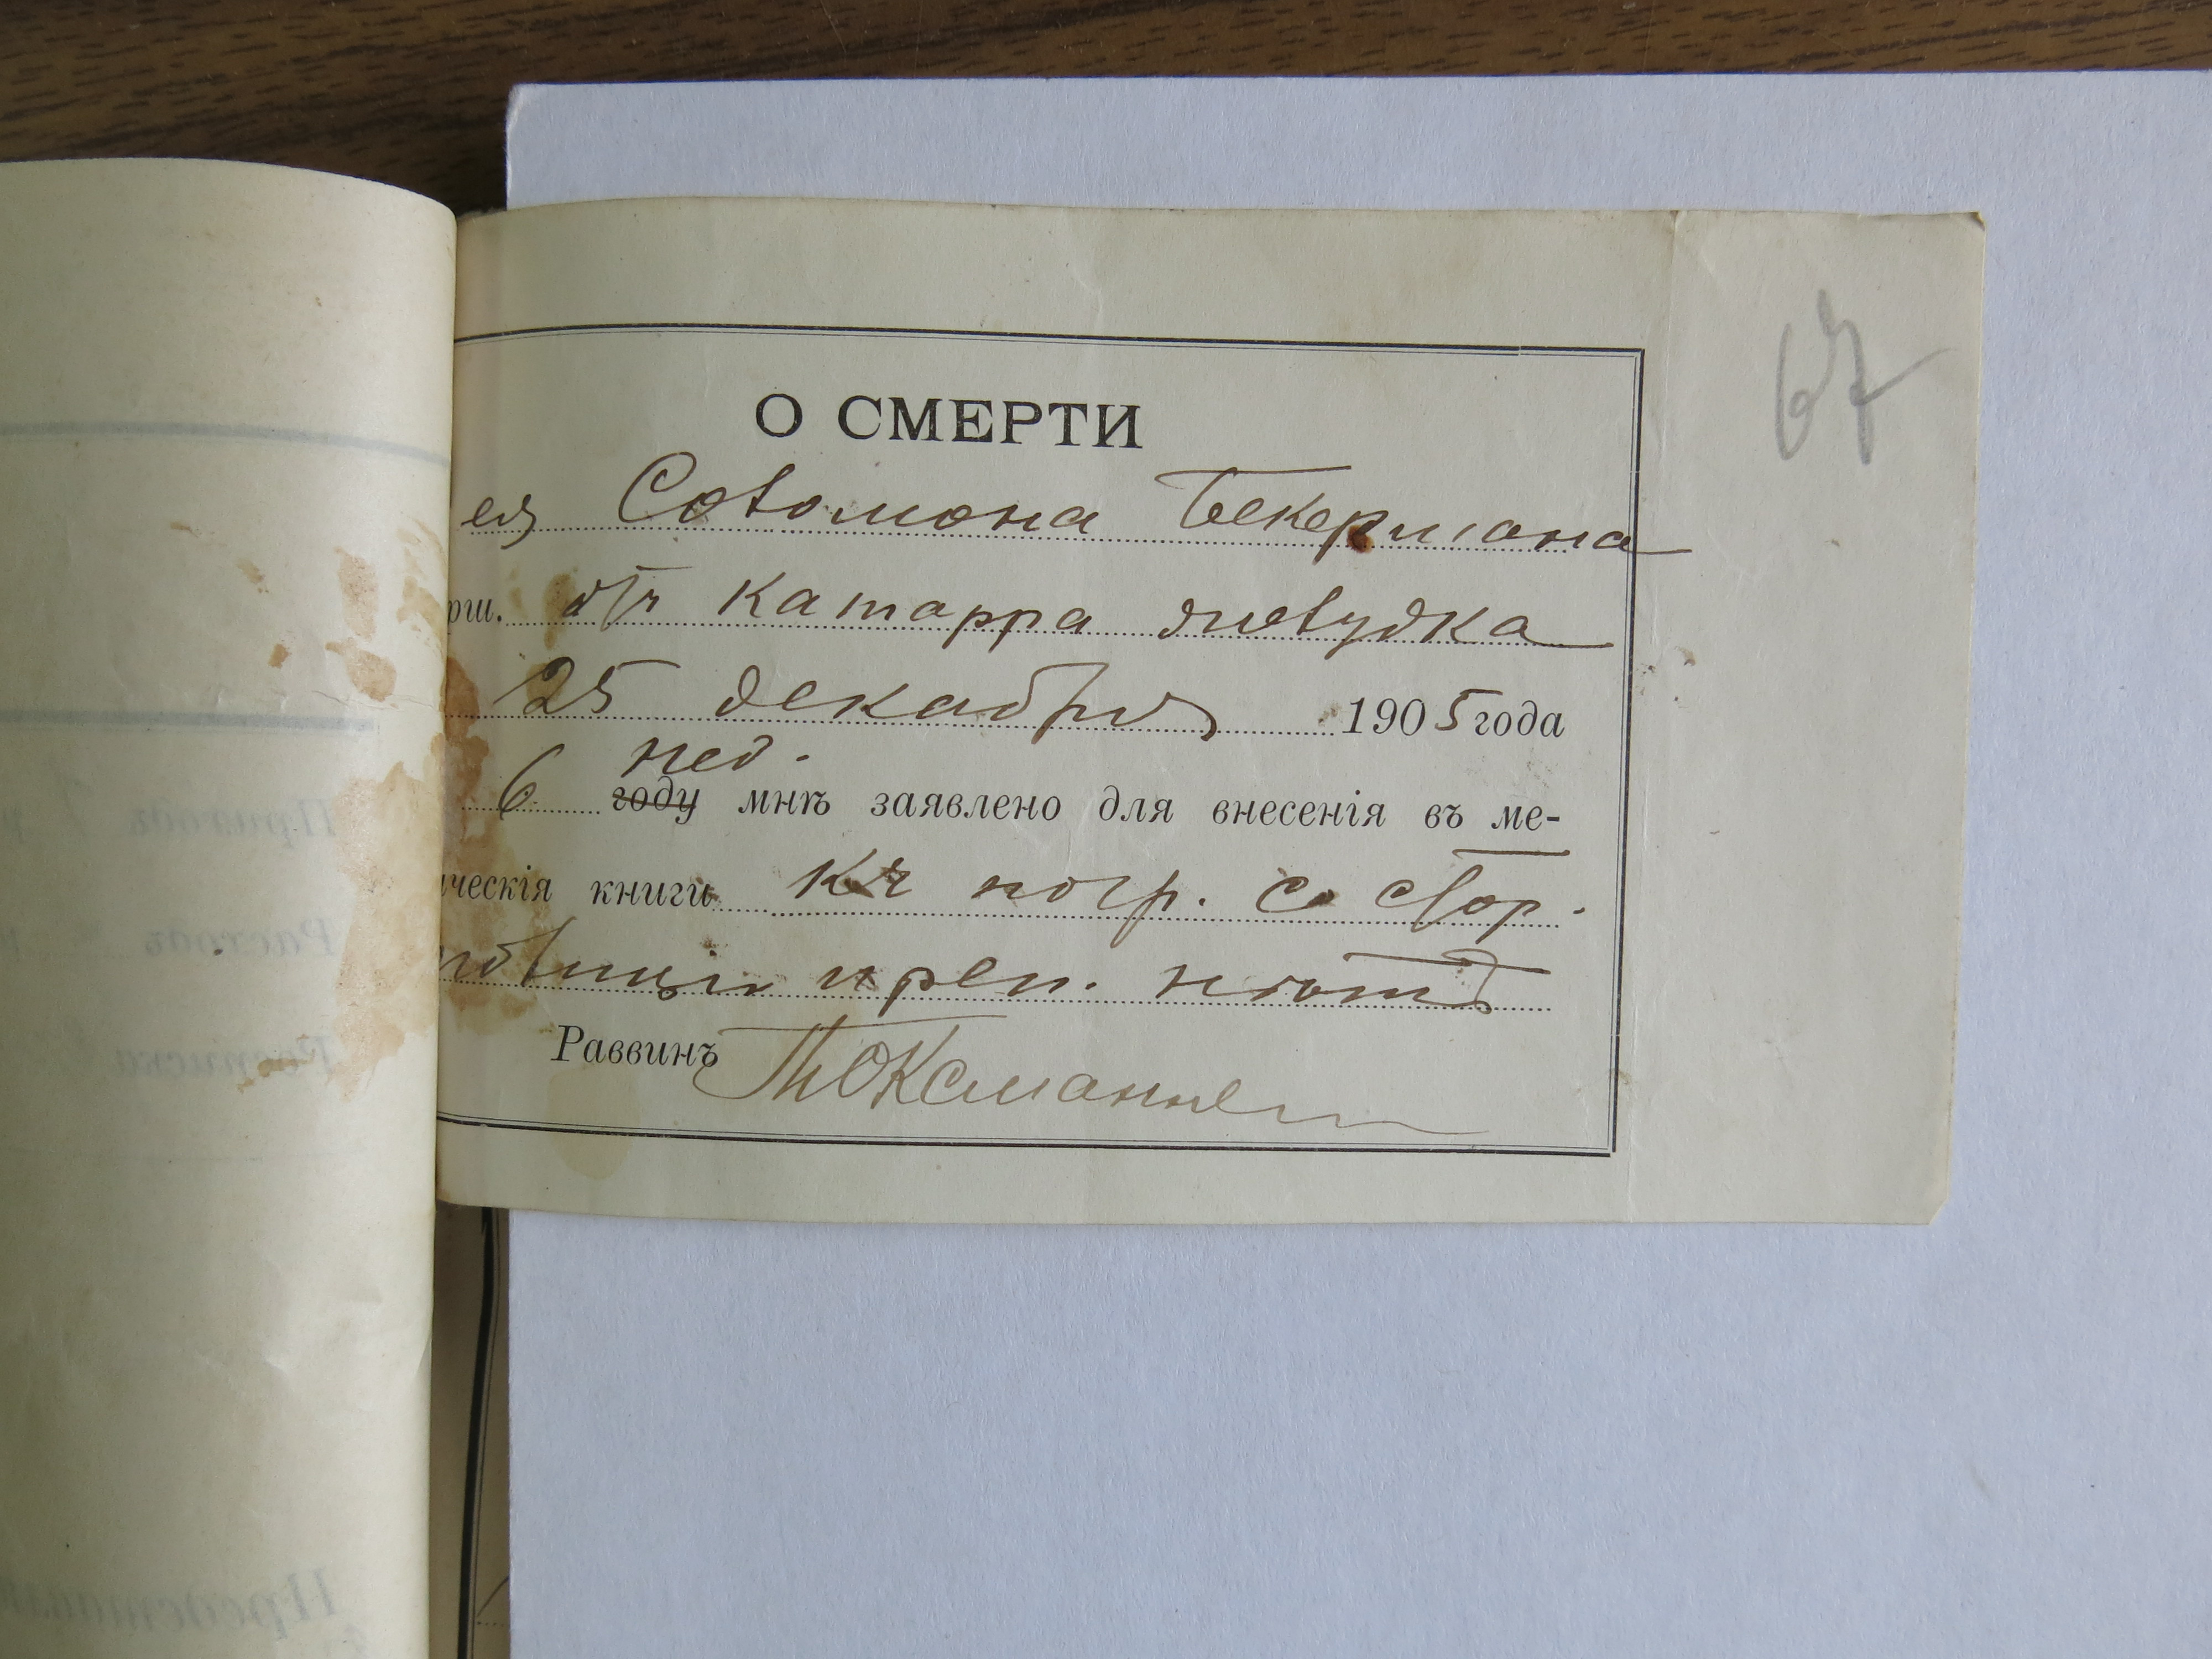 67
О СМЕРТИ
ея Соломона Бекермана
рш. отъ катарра желудка
25 декабря 1905 года
нед.
6 году мнѣ заявлено для внесенія въ ме-
ческія книги Къ погр. со стор.
препят. нѣтъ
Раввинъ
Приходъ
Расходъ
Росписка